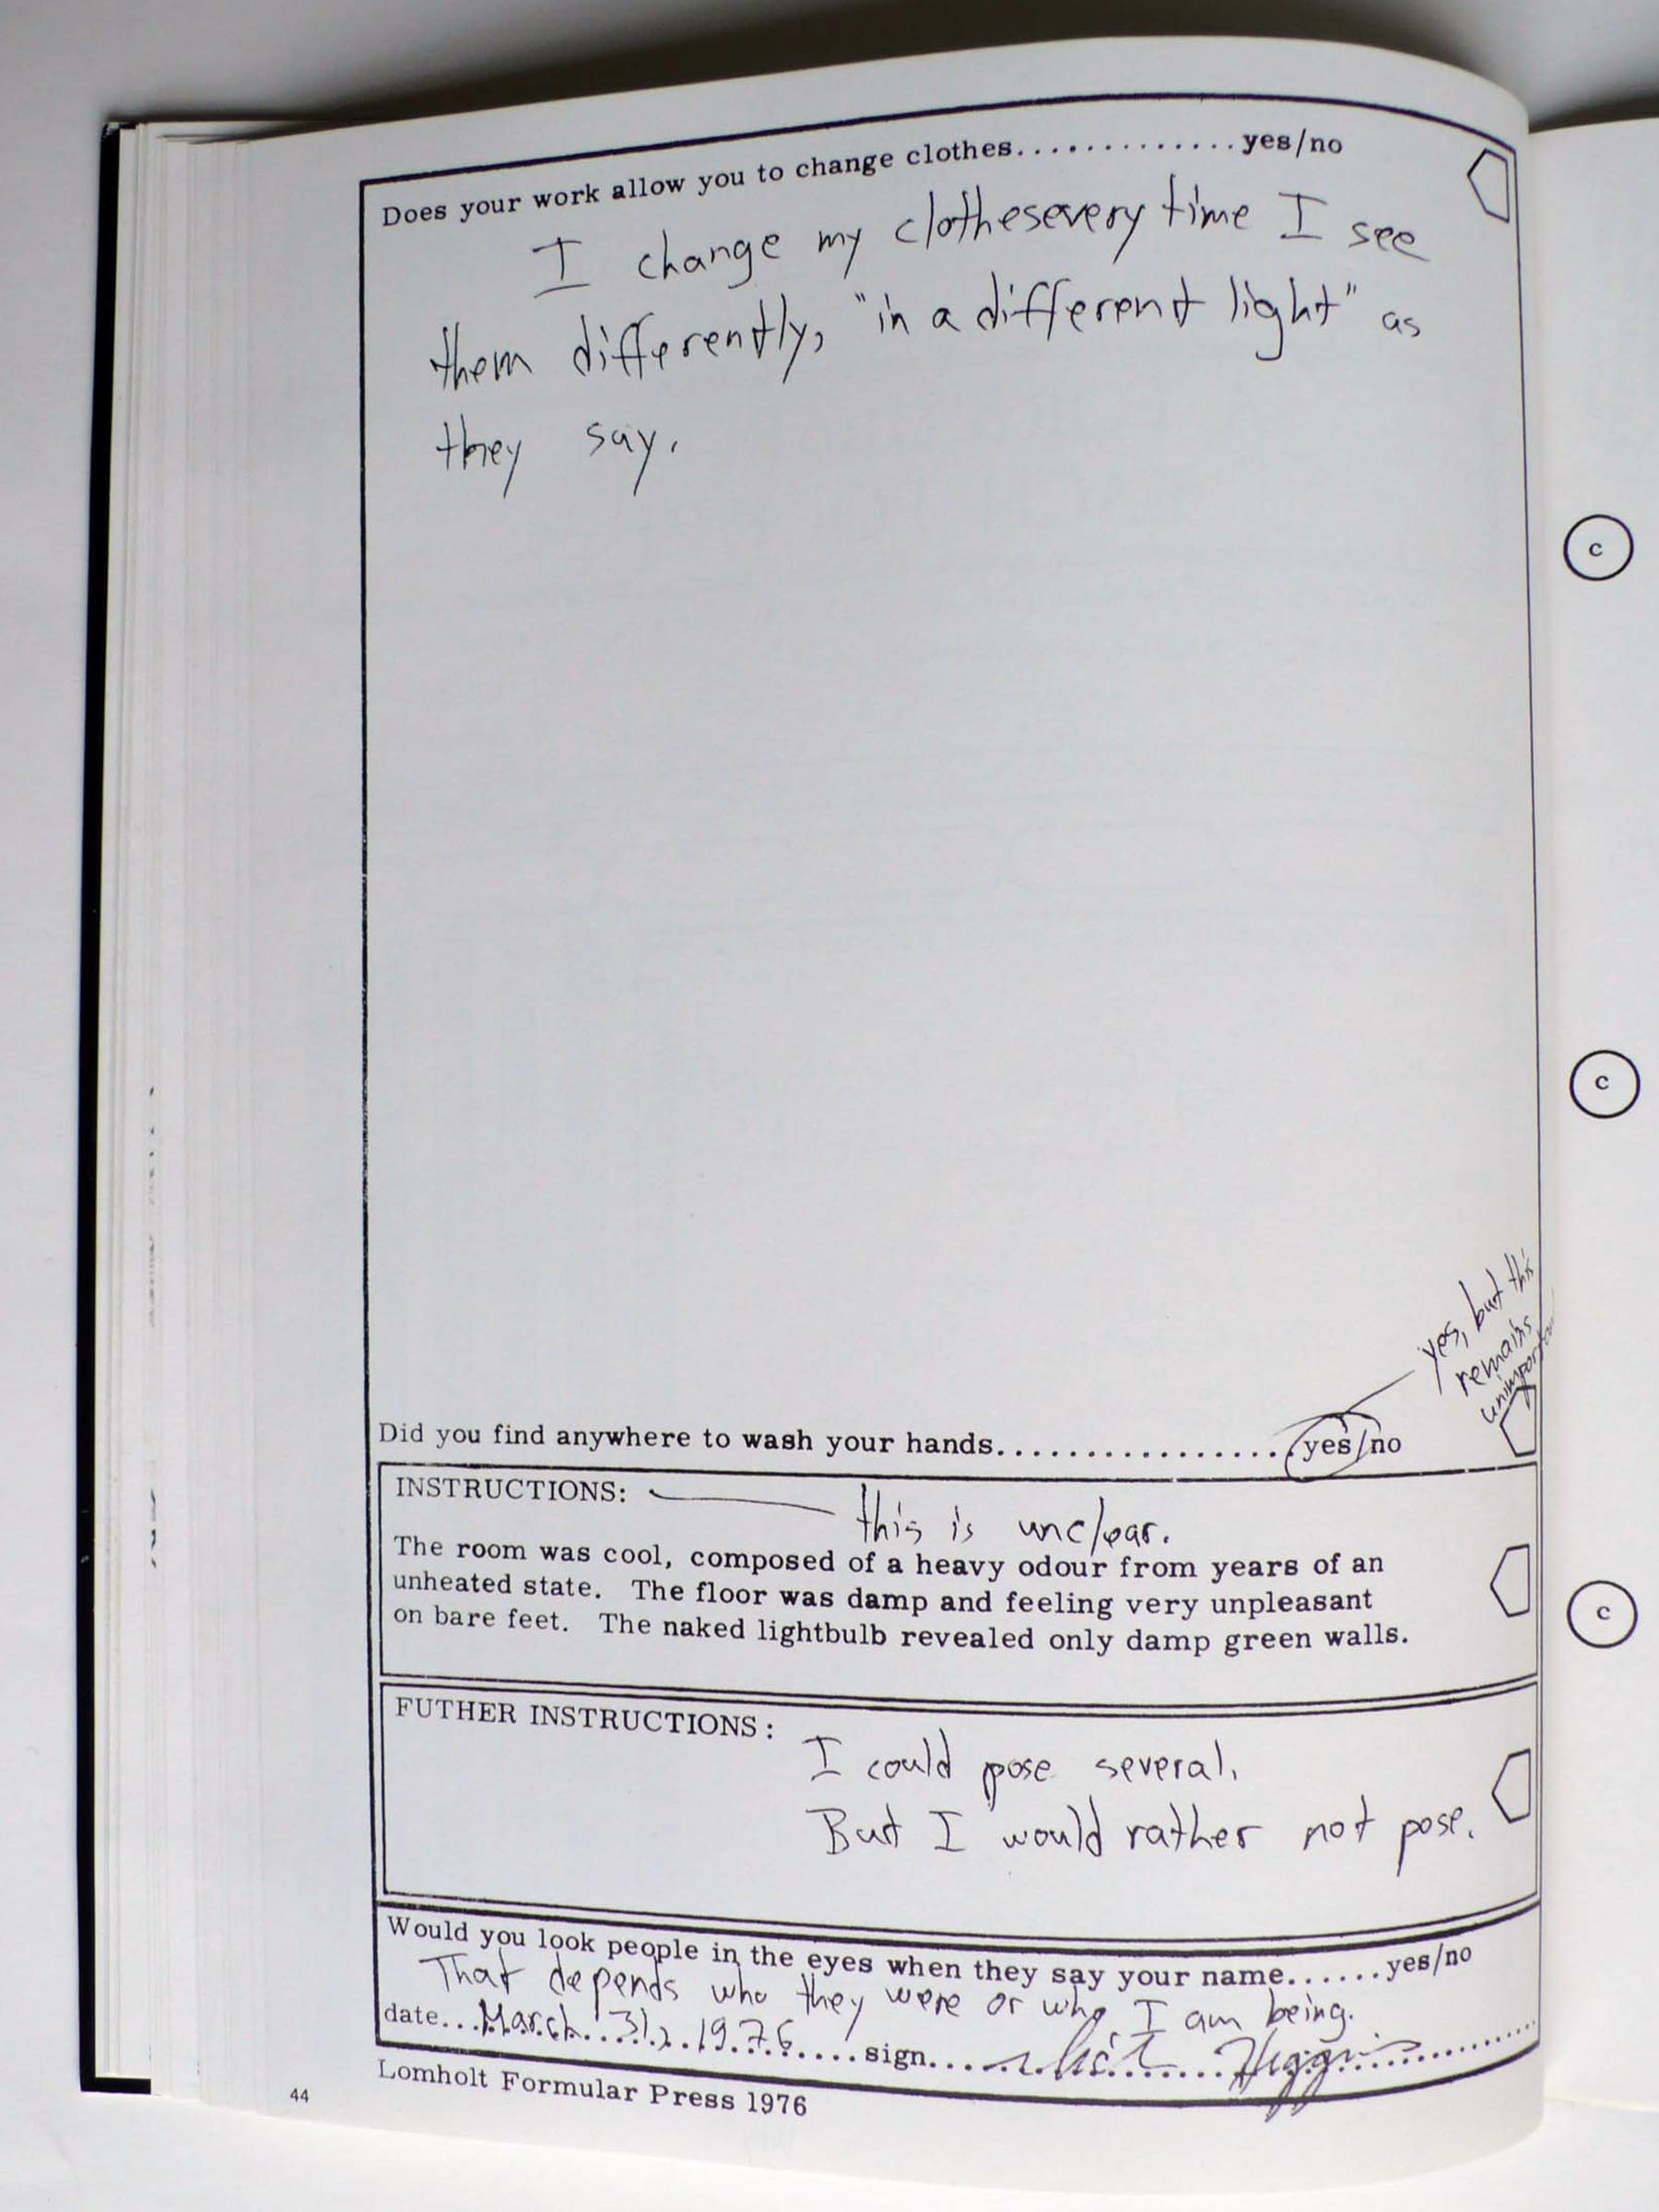 Does your work allow you to change clothes.............yes/no
I change my clothesevery time I see
them differently, "in a different light" as
they say.
c
c
yes, but this
remains
Did you find anywhere to wash your hands.................yes/no
INSTRUCTIONS:
this is unclear.
The room was cool, composed of a heavy odour from years of an
unheated state. The floor was damp and feeling very unpleasant
on bare feet. The naked lightbulb revealed only damp green walls.
c
FUTHER INSTRUCTIONS:
I could pose several.
But I would rather not pose.
Would you look people in the eyes when they say your name......yes/no
That depends who they were or who I am being.
date...March 31, 1976....sign.... Higgins
Lomholt Formular Press 1976
44